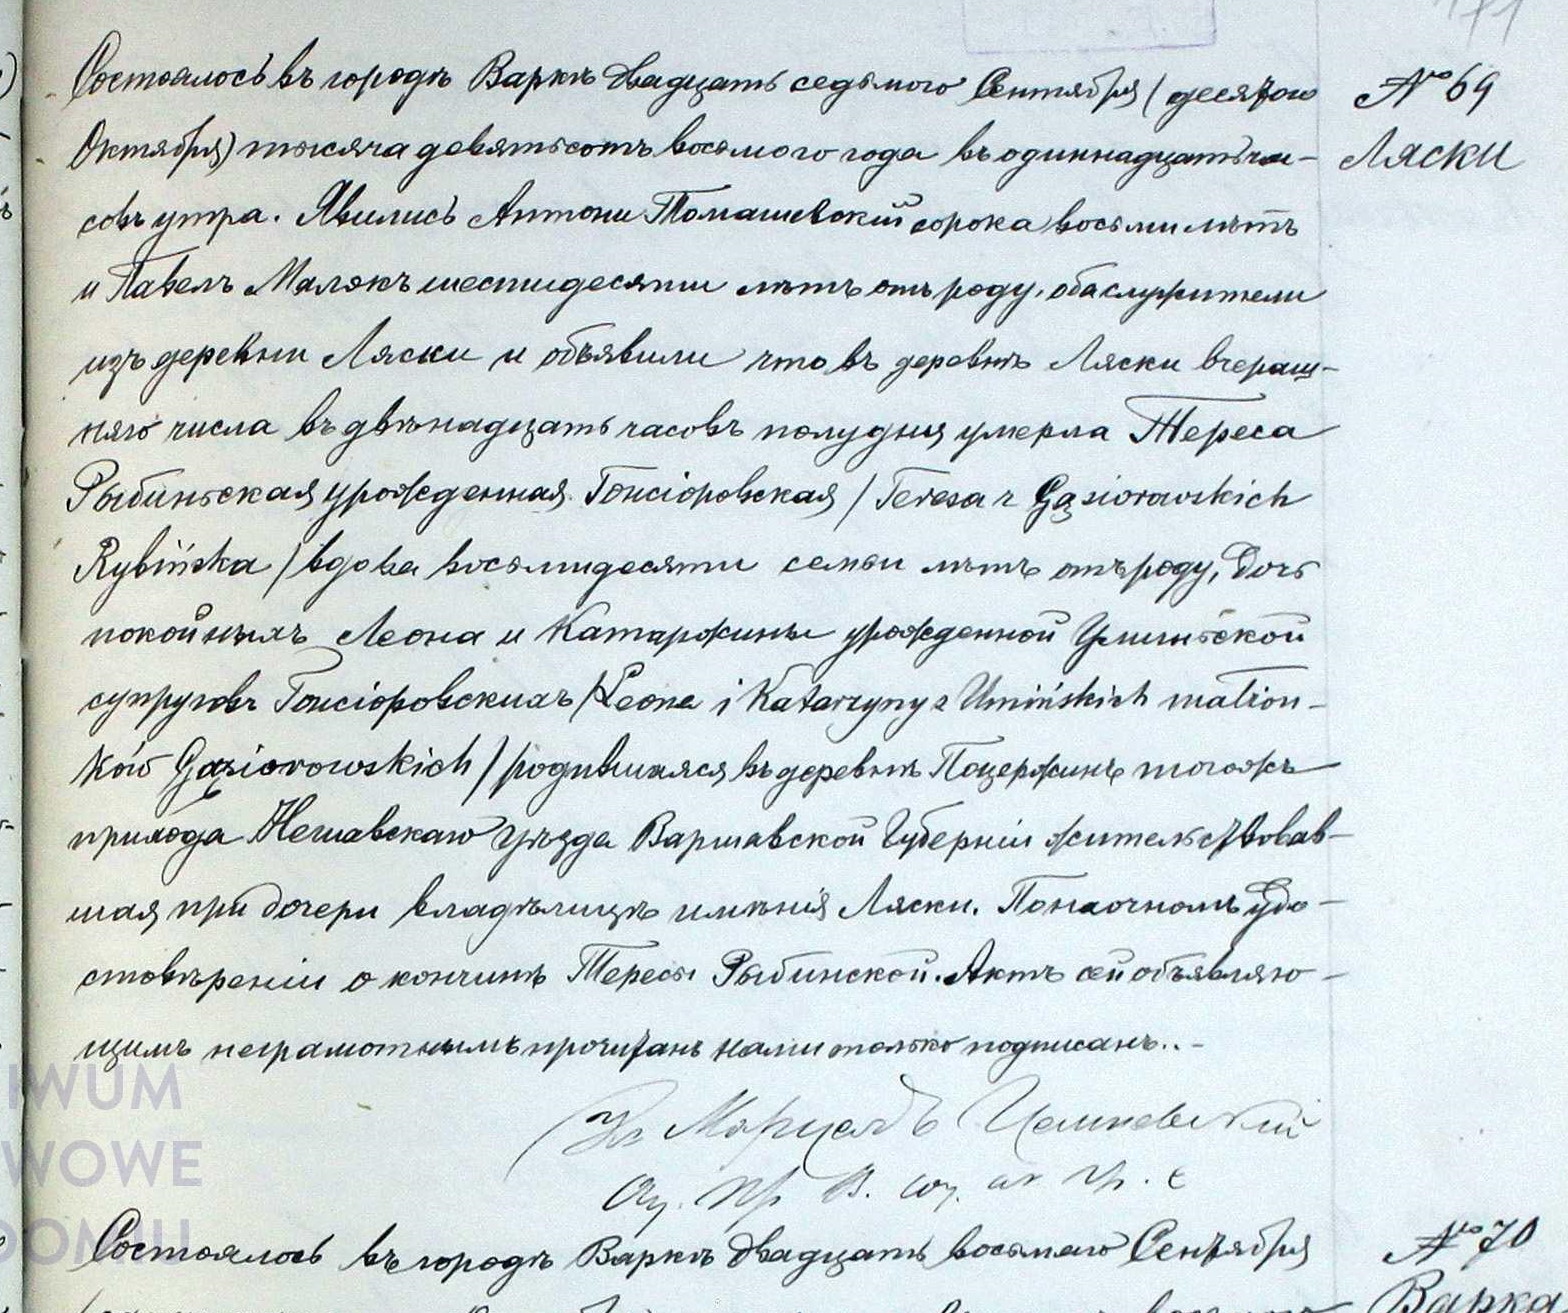 171
Состоялось въ городѣ Варкѣ двадцать седьмого Сентября / десятого № 69
Октября) тысяча девятьсотъ восьмого года въ одиннадцать ча- Ляски
совъ утра. Явились Антони Томашевскій сорока восьми лѣтъ
и Павелъ Малекъ шестидесяти лѣтъ отъ роду, оба служители
изъ деревни Ляски и объявили что въ деревнѣ Ляски вчераш-
няго числа въ двѣнадцать часовъ полудня умерла Тереса
Рыбинская урожденная Гонсіоровская / Teresa z Gąsiorowskich
Rybińska / вдова восьмидесяти семи лѣтъ отъ роду, дочь
покойныхъ Леона и Катаржины урожденной Уминьской
супруговъ Гонсіоровскихъ / Leona i Katarzyny z Umińskich małżon-
ków Gąsiorowskich / родившаяся въ деревнѣ тогожъ
прихода Нешавскаго уѣзда Варшавской Губерніи жительствовав-
шая при дочери владѣлицѣ имѣнія Ляски. По наочномъ удо-
стовѣреніи о кончинѣ Тересы Рыбинской. Актъ сей объявляю-
щимъ неграмотнымъ прочитанъ нами только подписанъ..-
Кс Марцелъ
Состоялось въ городѣ Варкѣ двадцать восьмаго Сентября № 70
Варка
IWUM
WOWE
DOMIU